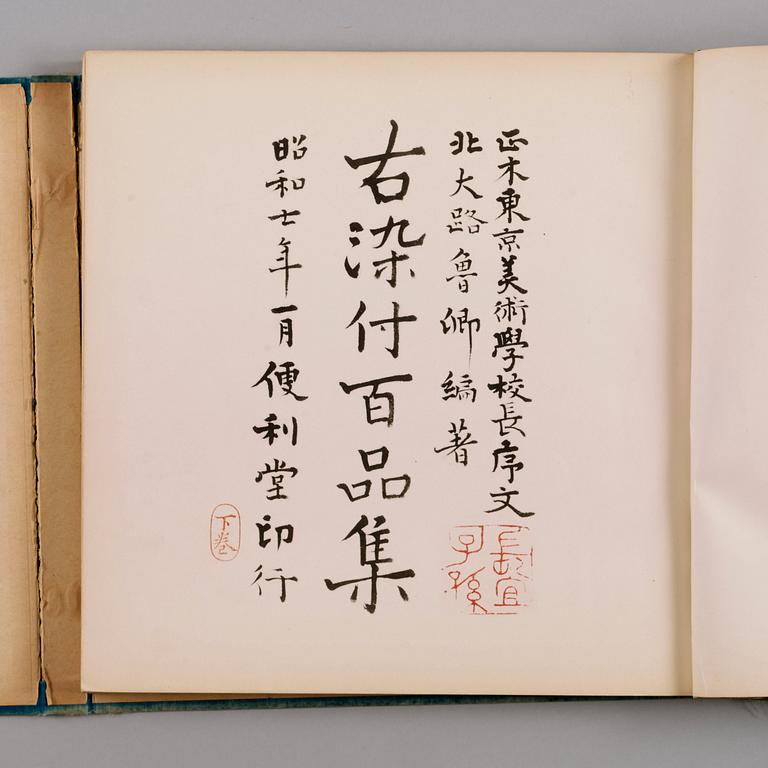 正木東京美術學校長序文
北大路魯卿編著
古染付百品集
昭和七年一月便利堂印行
長宜子孫
下巻